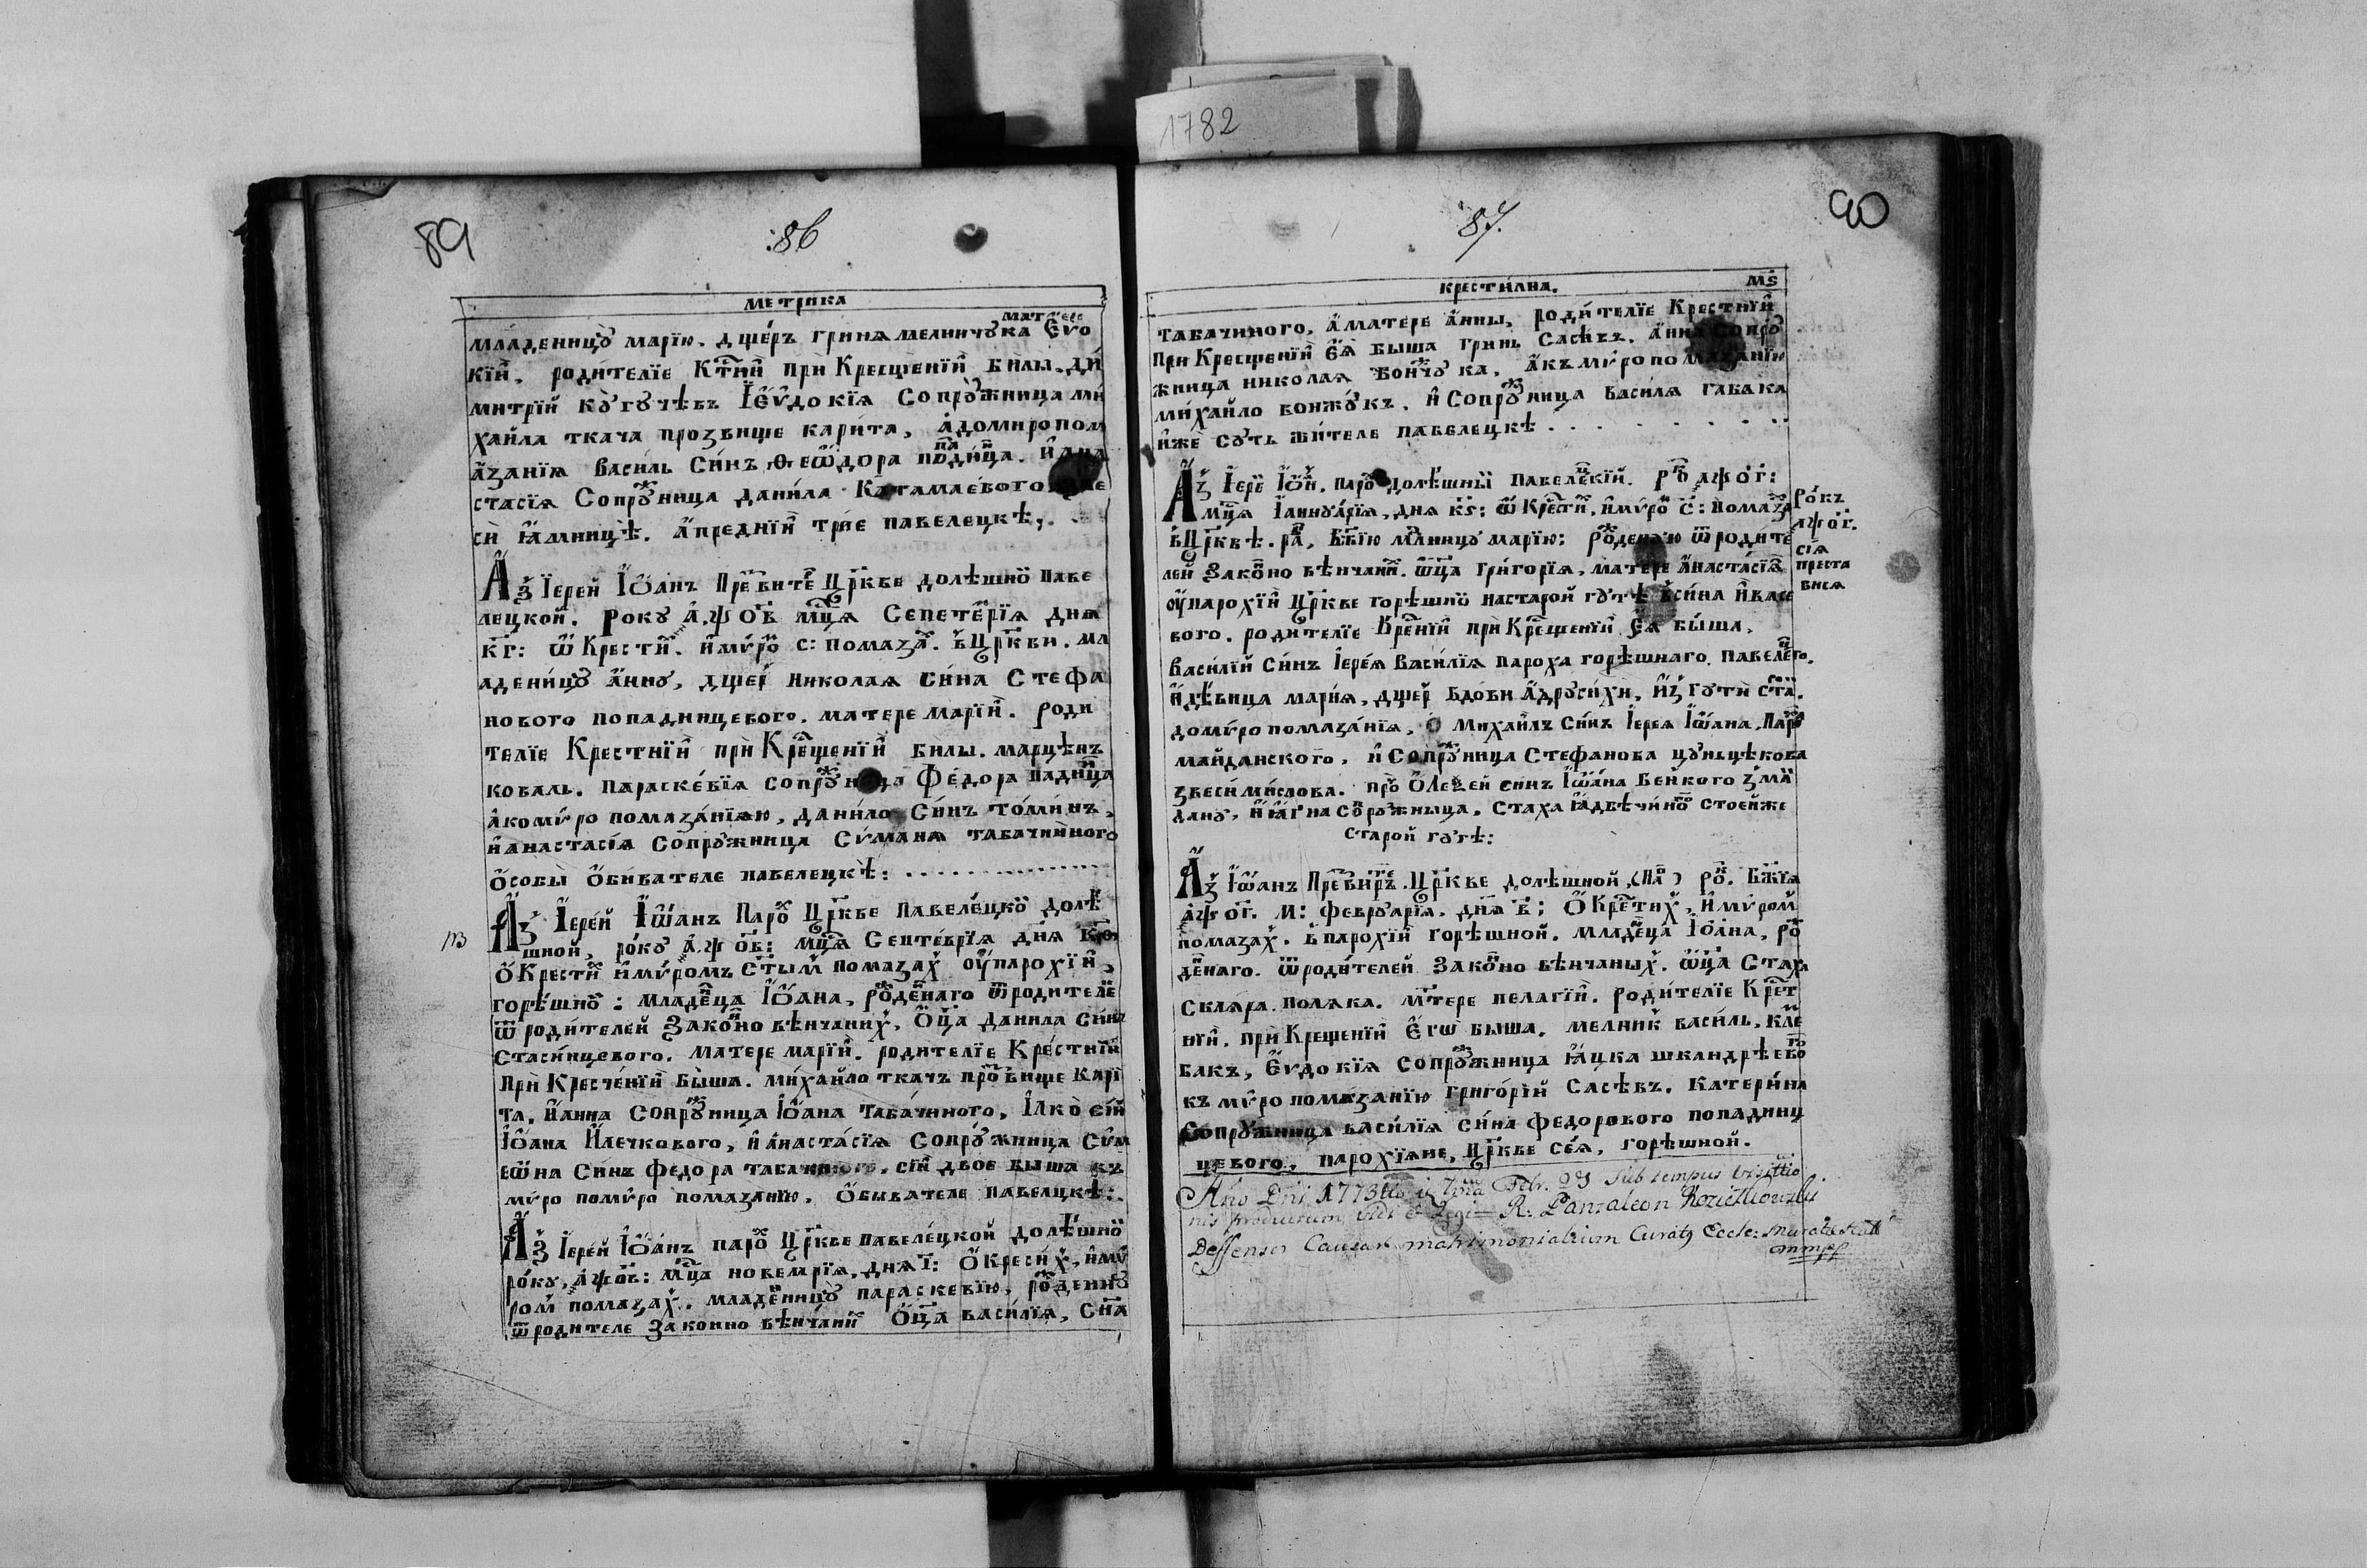 1782
89
:86
метрика
матере
младеницꙋ марїю. дщеръ гриня мелничꙋка Еѵдо
кїи. родителїе Кт͠нїи при Крещенїи били. ди
митрїй кꙋгꙋчѣвъ І Еѵдокїя Сопрꙋжница ми
хайла ткача прозвище карита, а до миропом
азанїя василь Синъ Ѳеѡдора падиц͠а. и ана
стасїя Сопрꙋжница данила Катамаевого
си Ꙗмницѣ. а преднїи трїе павелецкѣ,.
Аз Їерей Їѡанъ Превите͠р Цр͠кве долѣшной паве
лецкой. Року ҂аѱов мц͠я Сепетерїя дня
кг: ѿ Крести͠. и мѵро с: помаза. в Цр͠кви. мл
аденицꙋ анну, дщер николая сина Стефа
нового попадинцевого. матере марїи. роди
телїе Крестнїи при Кр͠щенїи били. марцѣнъ
коваль. Параскевїя сопрꙋжница Федора падица
а ко мѵро помазанїяю, данило Синъ томинъ,
и анастасїя Сопрꙋжница Сѵманя табачинного
особы обивателе павелецкѣ: . . . . . . . . . . . .
Аз Їерей Їѡанъ Паро͠х Цр͠кве Павелецкой долѣ
шной, року ҂аѱов: мц͠я Септеврїя дня
ѿ Крести и мѵромъ ст͠ым помазах ѹ парохїи,
горѣшной: младенца Їѡана, рожденнаго ѿ родителе
ѿ родителей Законно вѣнчаних, Оц͠а данила сина
Стасинцевого. матере марїи. родителїе Крестнїи
при Кресченїи быша. михайло ткачъ прозвище кари
та, и анна сопрꙋжница Їѡана табачинного, Їлко сий
Їѡана Илечкового, и анастасїя сопрꙋжница Сѵм
еѡна Синъ федора сїи двое быша къ
мѵро помѵро помазанїю, обывателе павелцкѣ:.
Аз Їерей Їѡанъ паро͠х Цр͠кве павелецкой долѣшной
року, ҂аѱов: мц͠а новемрїя, дня ї: о Кресих, и мѵ
ром помазах. младеницꙋ параскевїю, рожденнꙋ
ѿ родителе Законно вѣнчани͠ Оц͠а василїя, Сн͠а
90
87.
крестилна.
мѕ
табачинного, а матере анны, родителїе Крестнїи
при Кресщенїи Еѧ быша гринь Сасѣвъ. анна Сопрꙋ
жница николая войчꙋка, а къ мѵро помазанїю
михайло вонжꙋкъ. и Сопрꙋжница василя гавака
иже сꙋть жителе павелецкѣ . . . . . . . .
Аз Їере Їѡн. паро͠х долѣшный павелецкїй. ро͠ку ҂аѱог:
мц͠я Їаннꙋарїя, дня кѕ: ѿ Крести, и мѵро с: помаза
в Цр͠квѣ. ра, Б͠жїю младницꙋ марїю: рожденꙋю ѿ родите
лей Законно вѣнчани. ѿц͠а григорїя, матере анастасїи
ѹ парохїи Цр͠кве горѣшной на старой гꙋтѣ сина Ивасе
вого. родителїе Кре͠снїи при Кр͠ещенїи Еѧ быша.
Василїй синъ Їерея Василїя пароха горѣшнаго павелецго.
и дѣвица мария, дщер вдови адрꙋсихи, из гꙋти ста.
до мѵро помазанїя, михаилъ синъ Їерея Їѡана, паро
майданского, и Сопрꙋжница Стефанова цꙋньцѣкова
звесимислова. синъ Їѡана Бейкого з ма
данꙋ, и ꙗгна сопрꙋжныца, стаха стоейже
старой гꙋтѣ:
Рокъ
҂аѱог.
сїя
преста
вися
Аз Їѡанъ Превит͠ръ Цр͠кве долѣшной, (Па) ро. Б͠жїя
҂аѱог. м: феврꙋарїя. дня в: о Крестих, и мѵром
помазах. в парохїи горѣшной. младенца Їѡана, ро
деннаго. ѿ родителей Законно вѣнчаных. ѿц͠а Стаха
Скляра. поляка. матере пелагїи. родителїе Крест
нїи. при Крещенїи Его быша. мелник василь, кле
бакъ, Еѵдокїя сопрꙋжница Ꙗцка шкандрѣевого
къ мѵро помазанїю григорїй Сасѣвъ. Катерина
Сопрꙋжница василїя сина федорового попадинц
цевого, парохїяне, Цр͠кве сея, горѣшной.
Año Dni 1773tio d Febr. 23 sub tempus Visittio
nis productum vidi & legi R: Pantaleon
Deffensor Causar matrimonialium Curatg Eccle:
mmpp